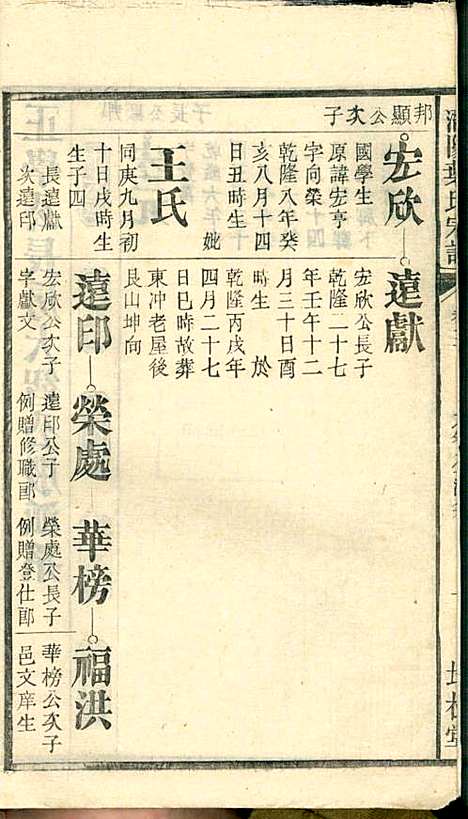 邦顯公次子
宏欣
遠獻
國學生
原諱宏亨
字向榮
乾隆八年癸
亥八月十四
日丑時生 妣
宏欣公長子
乾隆二十七
年壬午十二
月三十日酉
時生 於
乾隆丙戌年
四月二十七
日巳時故葬
東冲老屋後
艮山坤向
王氏
同庚九月初
十日戌時生
生子四
長遠獻
次遠印
遠印
宏欣公次子
字獻文
榮處
遠印公子
例贈修職郎
華榜
榮處公長子
例贈登仕郎
福洪
華榜公次子
邑文庠生